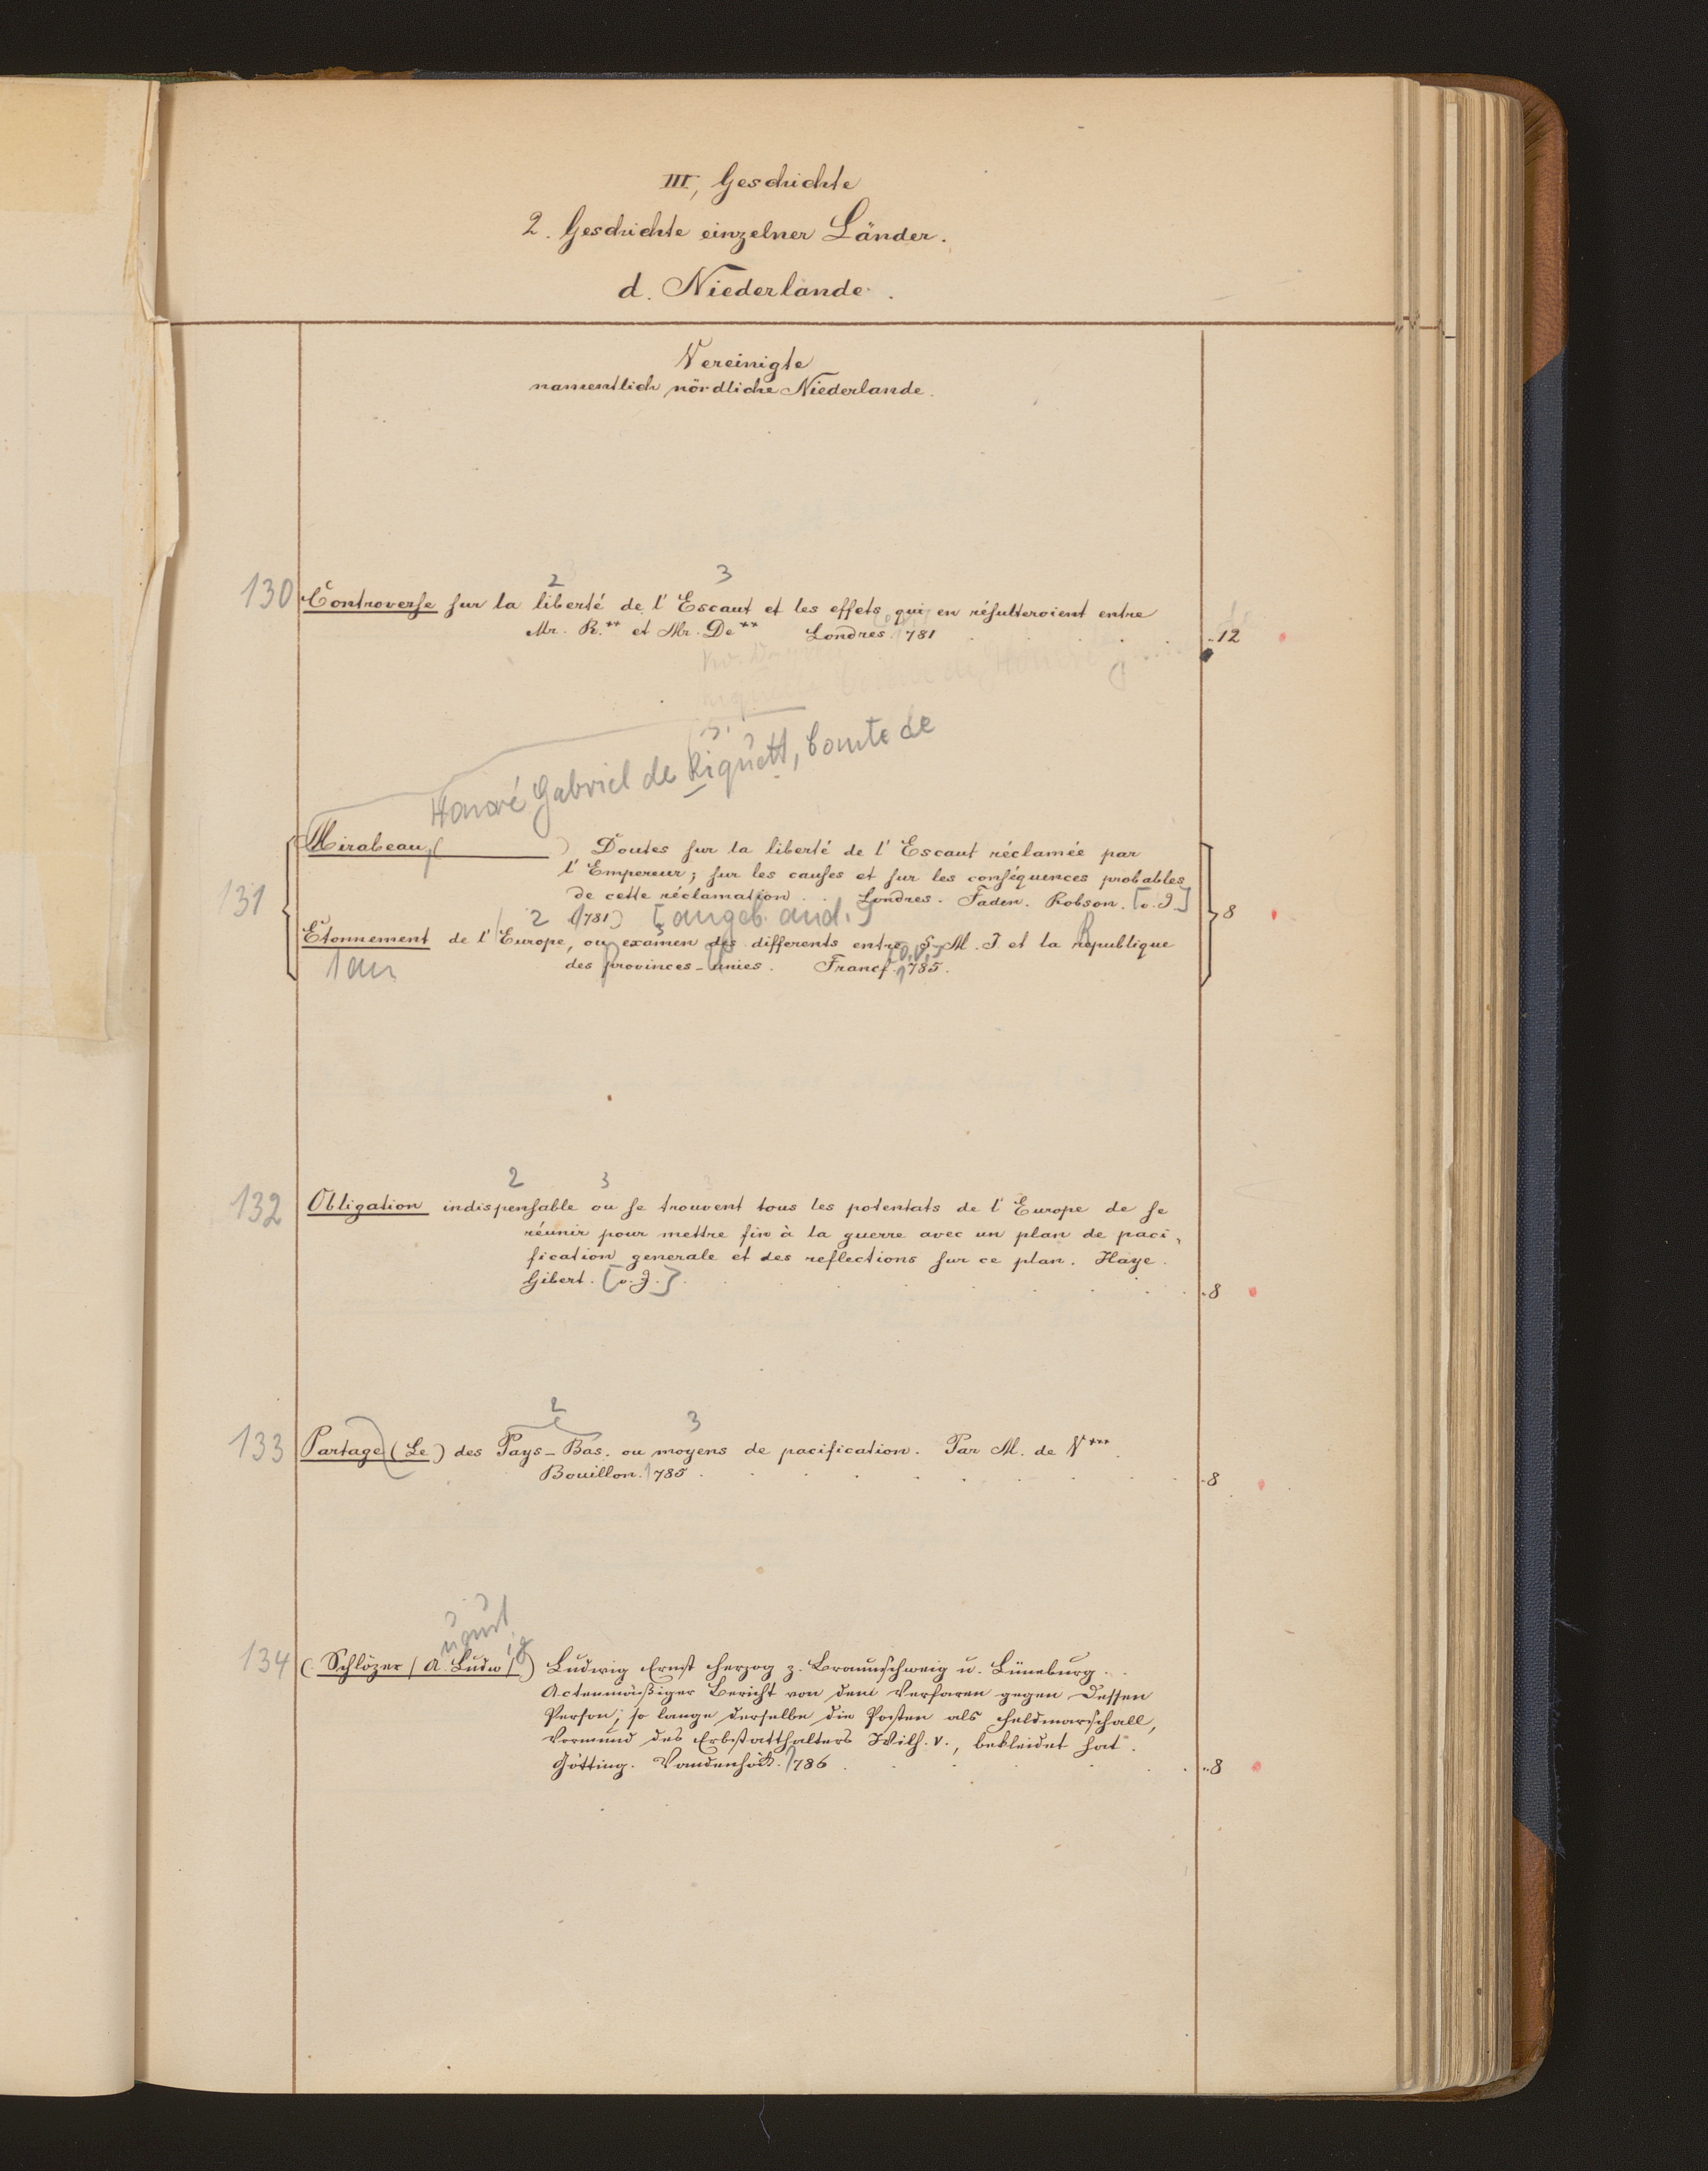 III, Geschichte
2. Geschichte einzelner Länder.
d. Niederlande.
Vereinigte
namentlich nördliche Niederlande.
2 3
130 Controverse sur la liberté de l'Escaut et les effets qui en résulteroient entre
Mr. R.** et Mr. De** Londres. 1781 12
Honoré Gabriel de Riquett, Comte de
Mirabeau, ( ) Doutes sur la liberté de l'Escaut réclamée par
l'Empereur; sur les causes et sur les conséquences probables
131 de cette réclamation. Londres. Faden. Robson. [o. J.] 8
2 (1781) [angeb. and.]
Etonnement de l'Europe, ou examen des differents entre S. M. I et la Republique
1 an des Provinces-Unies. Francf. [o. V.] 1785.
2 3
132 Obligation indispensable ou se trouvent tous les potentats de l'Europe de se
réunir pour mettre fin à la guerre avec un plan de paci-
fication generale et des reflections sur ce plan. Haye.
Gibert. [o. J.] 8
2 3
133 Partage (Le) des Pays-Bas. ou moyens de pacification. Par M. de V***.
Bouillon. 1785 8
ugust ig
134 (Schlözer / A. Ludw /) Ludwig Ernst Herzog z. Braunschweig u. Lüneburg.
Actenmäßiger Bericht von dem Verfaren gegen Dessen
Person, so lange derselbe die Posten als Feldmarschall,
Vormund des Erbstatthalters Wilh. V., bekleidet hat.
Götting. Vandenhöck. 1786 8